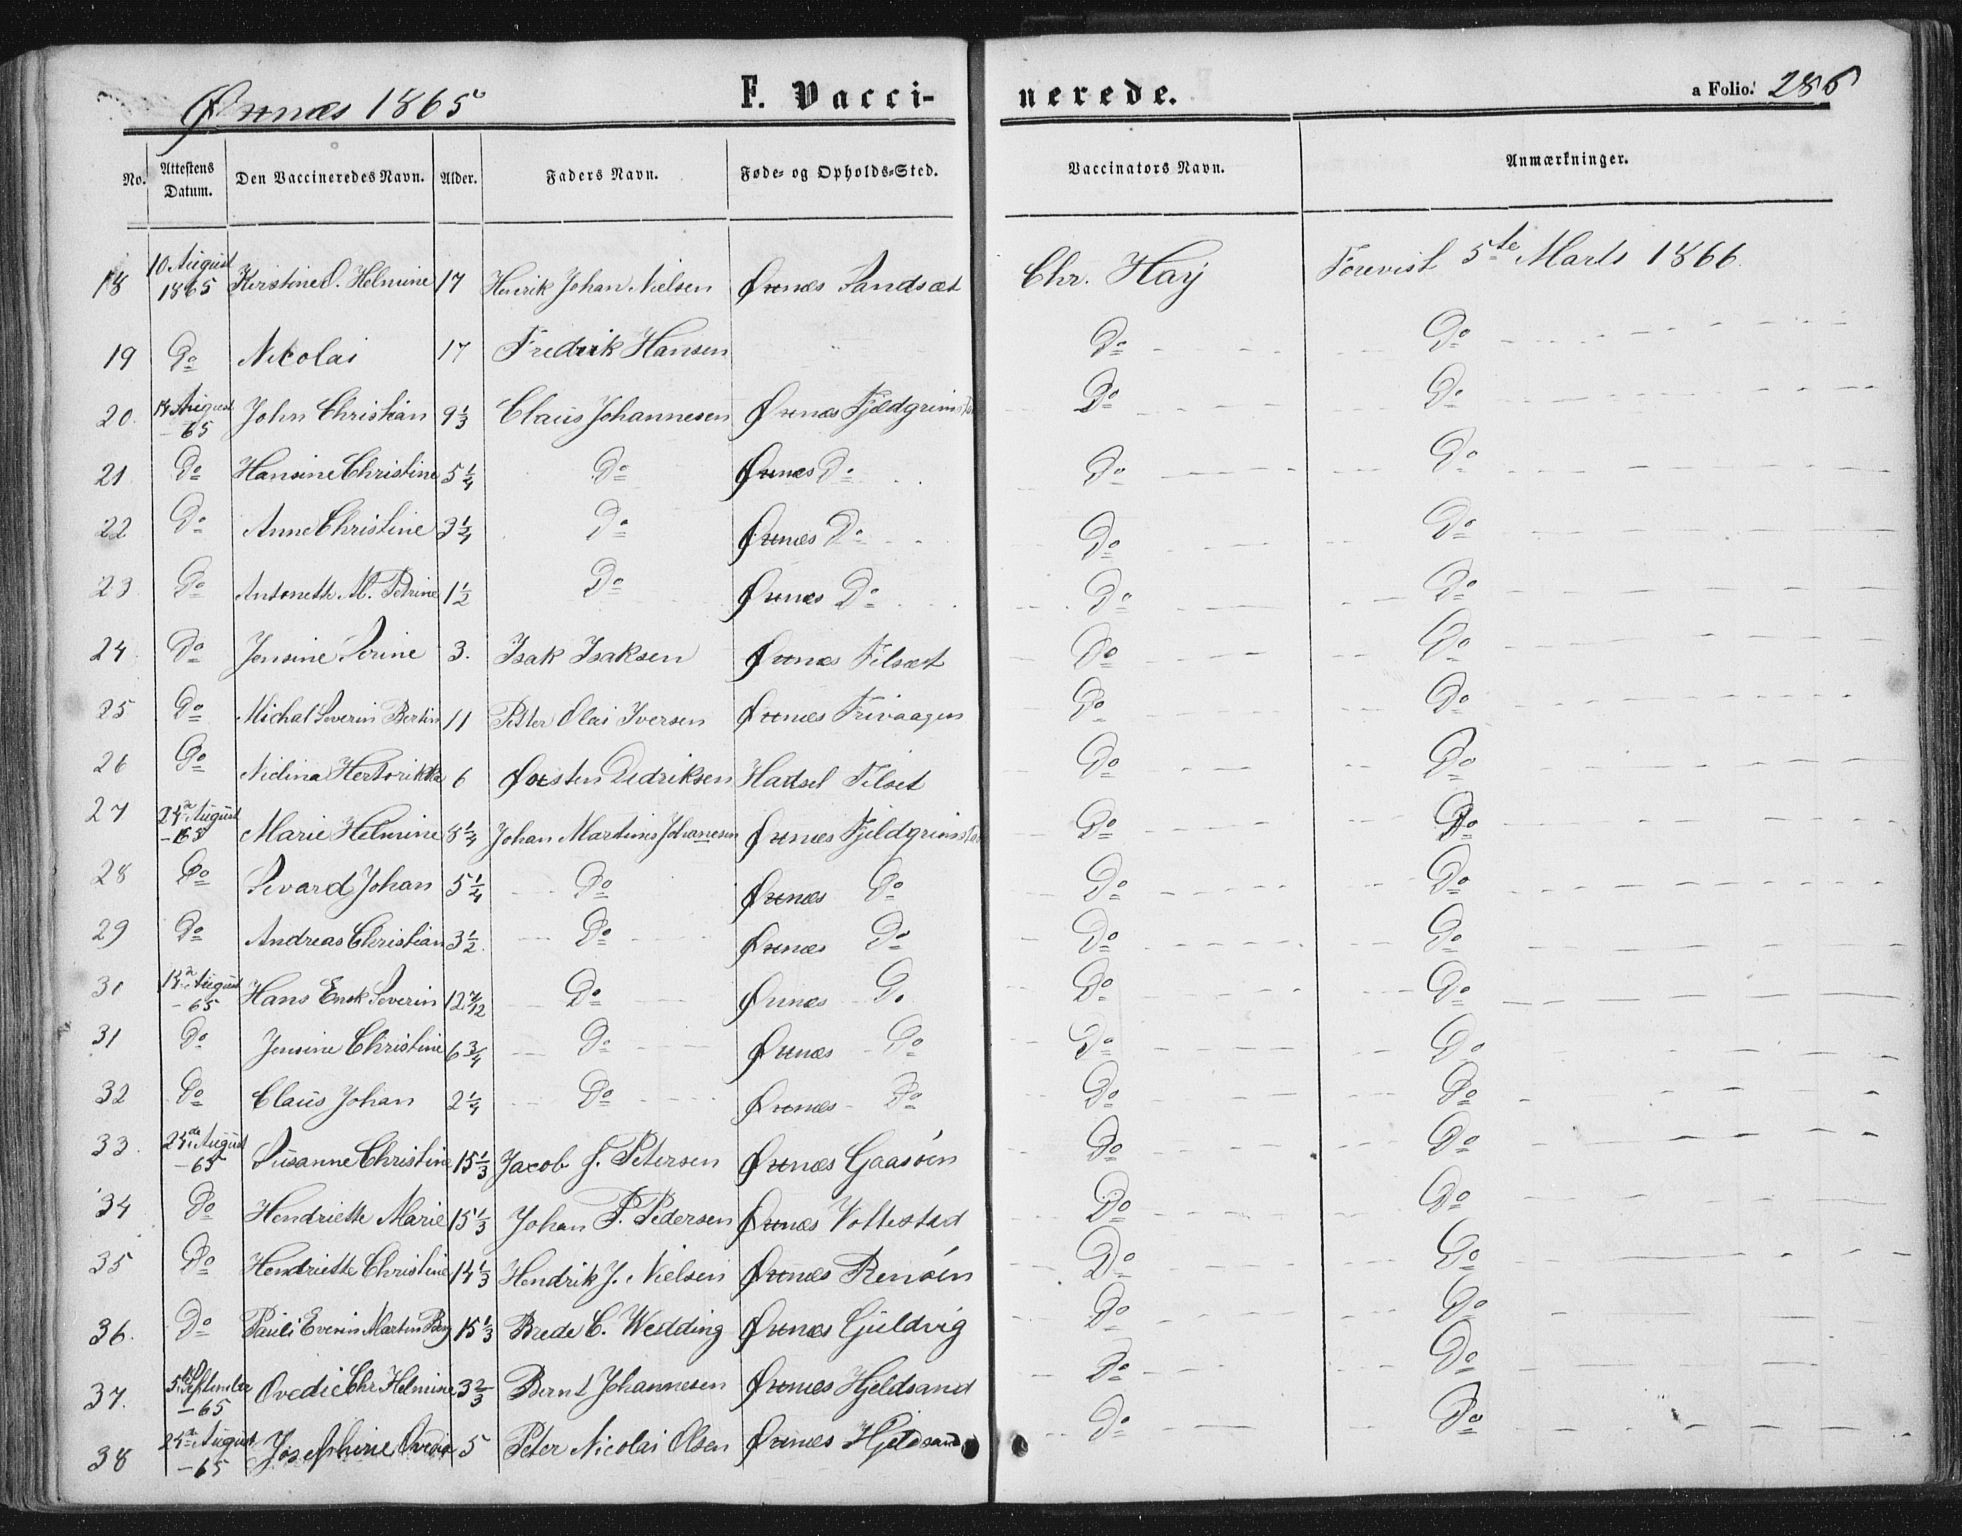 Øxnæs 1865 F. Vacci- nerede. a Folio. 286
No. Attestens Datum. Den Vaccineredes Navn. Alder. Faders Navn. Føde- og Opholds-Sted. Vaccinators Navn. Anmærkninger.
18 10 August 1865 Kerstine O. Helmine 17 Henrik Johan Nielsen Øxnæs Sandsæt Chr. Hay Forevist 5te Marts 1866
19 Do Nicolai 17 Fredrik Hansen Do Do
20 14 August -65 John Christian 9 1/3 Claus Johannesen Øxnæs Fjeldgrims Do Do
21 Do Hansine Christine 5 1/4 Do Øxnæs Do Do Do
22 Do Anne Christine 3 1/4 Do Øxnæs Do Do Do
23 Do Antonette M. Petrine 1 1/2 Do Øxnæs Do Do Do
24 Do Jensine Serine 3. Isak Isaksen Øxnæs Tilsæt Do Do
25 Do Michal Severin Bertin 11 Petter Olai Iversen Øxnæs Frivaagen Do Do
26 Do Nidina 6 Didriksen Hadsel Tilset Do Do
27 24de August -65 Marie Helmine 8 1/4 Johan Martines Johanesen Øxnæs Fjeldgrims Do Do
28 Do Sevard Johan 5 1/4 Do Øxnæs Do Do Do
29 Do Andreas Christian 3 1/2. Do Øxnæs Do Do Do
31 14de August -65 Hans Enok Severin 12 7/12 Do Øxnæs Do Do Do
31 Do Jensine Christine 6 3/4 Do Øxnæs Do Do Do
32 Do Claus Johan 2 1/4 Do Øxnæs Do Do Do
33 24de August -65 Susanne Christine 15 1/3 Jacob J. Petersen Øxnæs Gaasöen Do Do
34 Do Hendriette Marie 15 1/3 Johan P. Pedersen Øxnæs Vottestad Do Do
35 Do Hendriette Christine 14 1/3 Hendrik J. Nielsen Øxnæs Rensöen Do Do
36. Do Pauli Evenin Martin Berg 15 1/3 Brede C. Wedding Øxnæs Guldvig Do Do
37. 5te September -65 Ovedie Chr. Helmine 3 2/3 Bernt Johannesen Øxnæs Hjeldsand Do Do
38 24de August -65 Josephine Ovedia 5 Peter Nicolai Olsen Øxnæs Hjeldsand Do Do